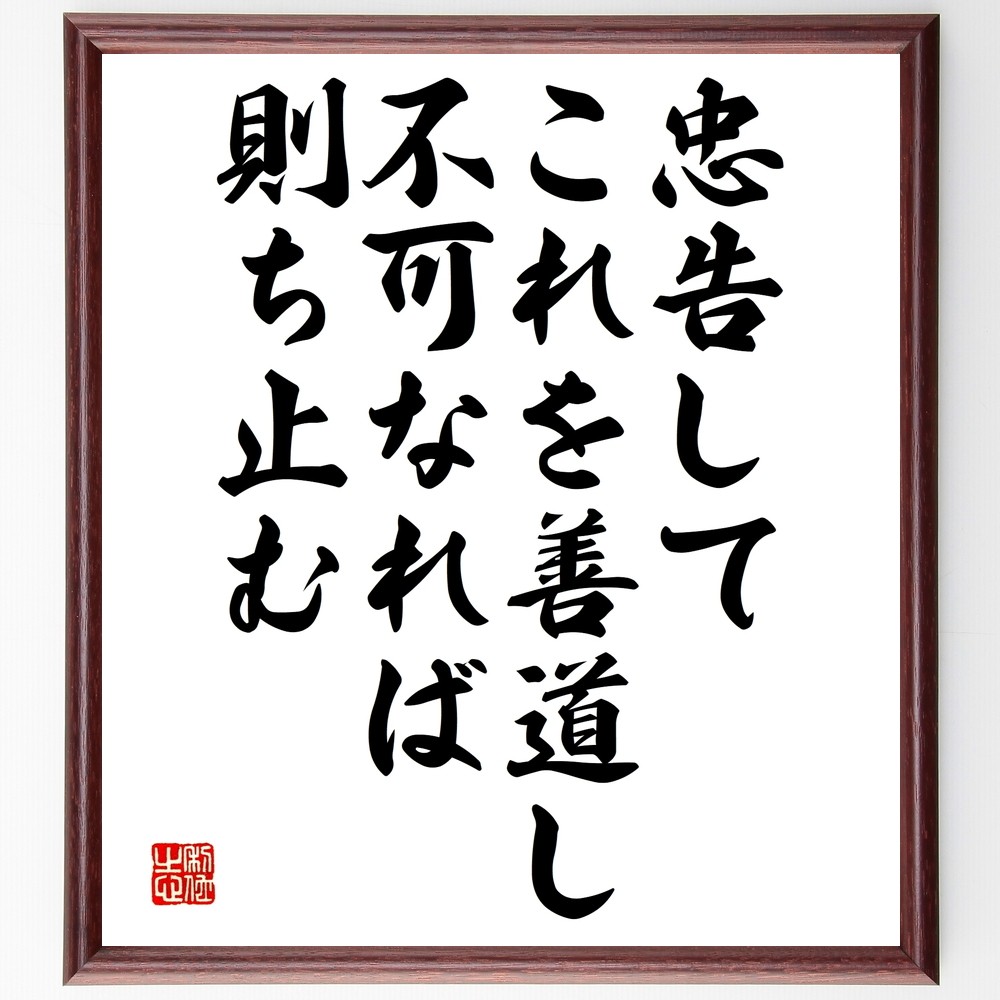 忠告して
これを善道し
不可なれば
則ち止む